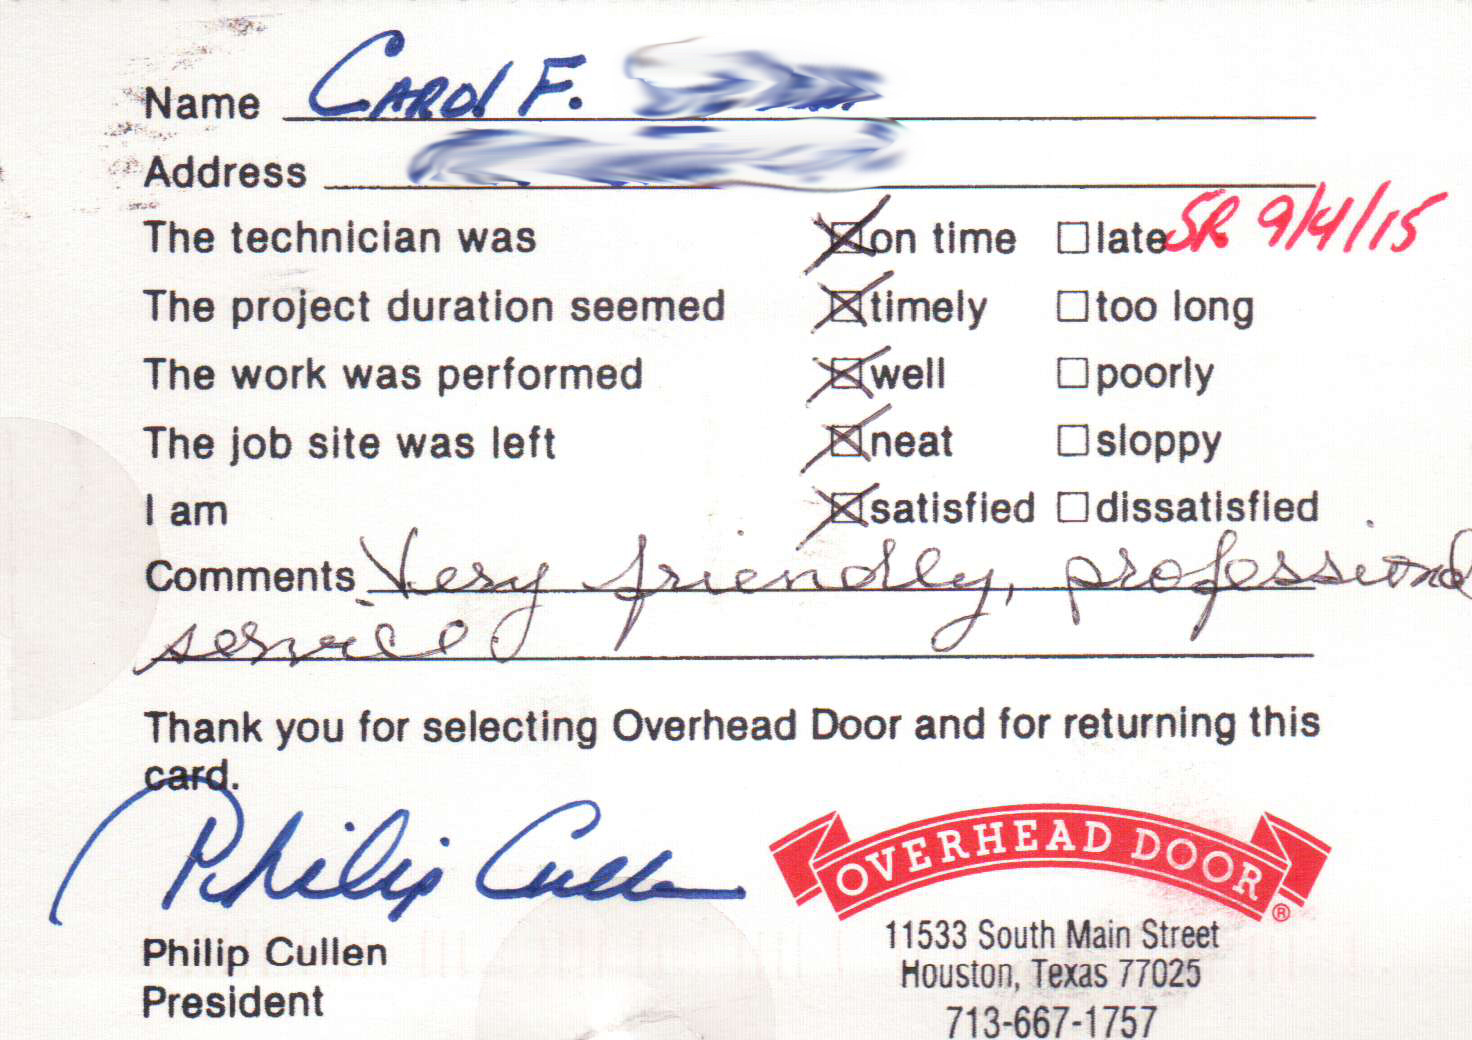 Name CAROl F.
Address
The technician was on time late SR 9/4/15
The project duration seemed timely too long
The work was performed well poorly
The job site was left neat sloppy
I am satisfied dissatisfied
Comments Very friendly, professional
service
Thank you for selecting Overhead Door and for returning this
card.
Philip Cullen
OVERHEAD DOOR ®
Philip Cullen
President
11533 South Main Street
Houston, Texas 77025
713-667-1757